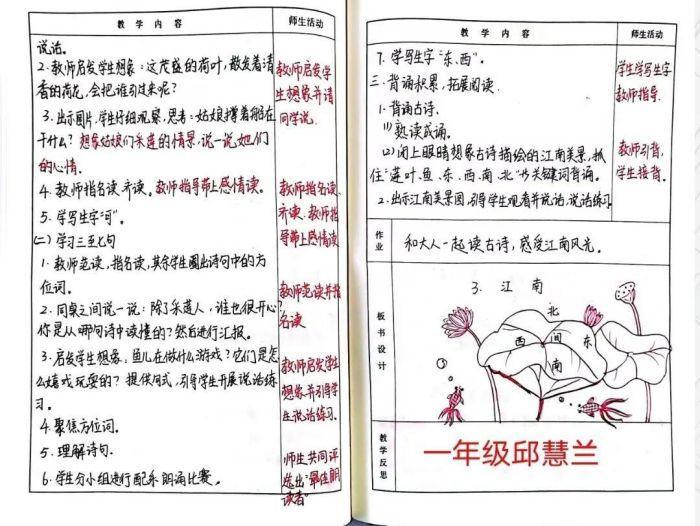 教 学 内 容
师生活动
说话。
2.教师启发学生想象:这茂盛的荷叶,散发着清
香的荷花,会把谁引过来呢?
3.出示图片,学生仔细观察,思考:姑娘撑着船在
干什么?想象姑娘们采莲的情景,说一说她们
的心情。
4.教师指名读.齐读。教师指导带上感情读。
5.学写生字"可"。
(二)学习三至七句
1.教师范读,指名读,其余学生圈出诗句中的方
位词。
2.同桌之间说一说:除了采莲人,谁也很开心?
你是从哪句诗中读懂的?然后进行汇报。
3.启发学生想象,鱼儿在做什么游戏?它们是怎
么嬉戏玩耍的?提供句式,引导学生开展说话练
习。
4.聚焦方位词。
5.理解诗句。
6.学生分小组进行配乐朗诵比赛。
教师启发学
生想象并请
同学说.
教师指名读.
齐读.教师指
导带上感情读
教师范读并指
名读
教师启发学生
想象并引导学
生说话练习.
师生共同评
选出"最佳朗
读者"
教 学 内 容
师生活动
7.学写生字"东、西"。
三、背诵积累,拓展阅读.
1.背诵古诗.
(1)熟读成诵。
(2)闭上眼睛想象古诗描绘的江南美景,抓
住"莲叶.鱼.东.西.南.北"等关键词背诵。
2.出示江南美景图,引导学生观看并说话.说话练习.
学生学写生字
教师指导.
教师引背,
学生接背.
作业
和大人一起读古诗,感受江南风光。
板书设计
3. 江 南
北
西 间 东
南
教学反思
一年级邱慧兰